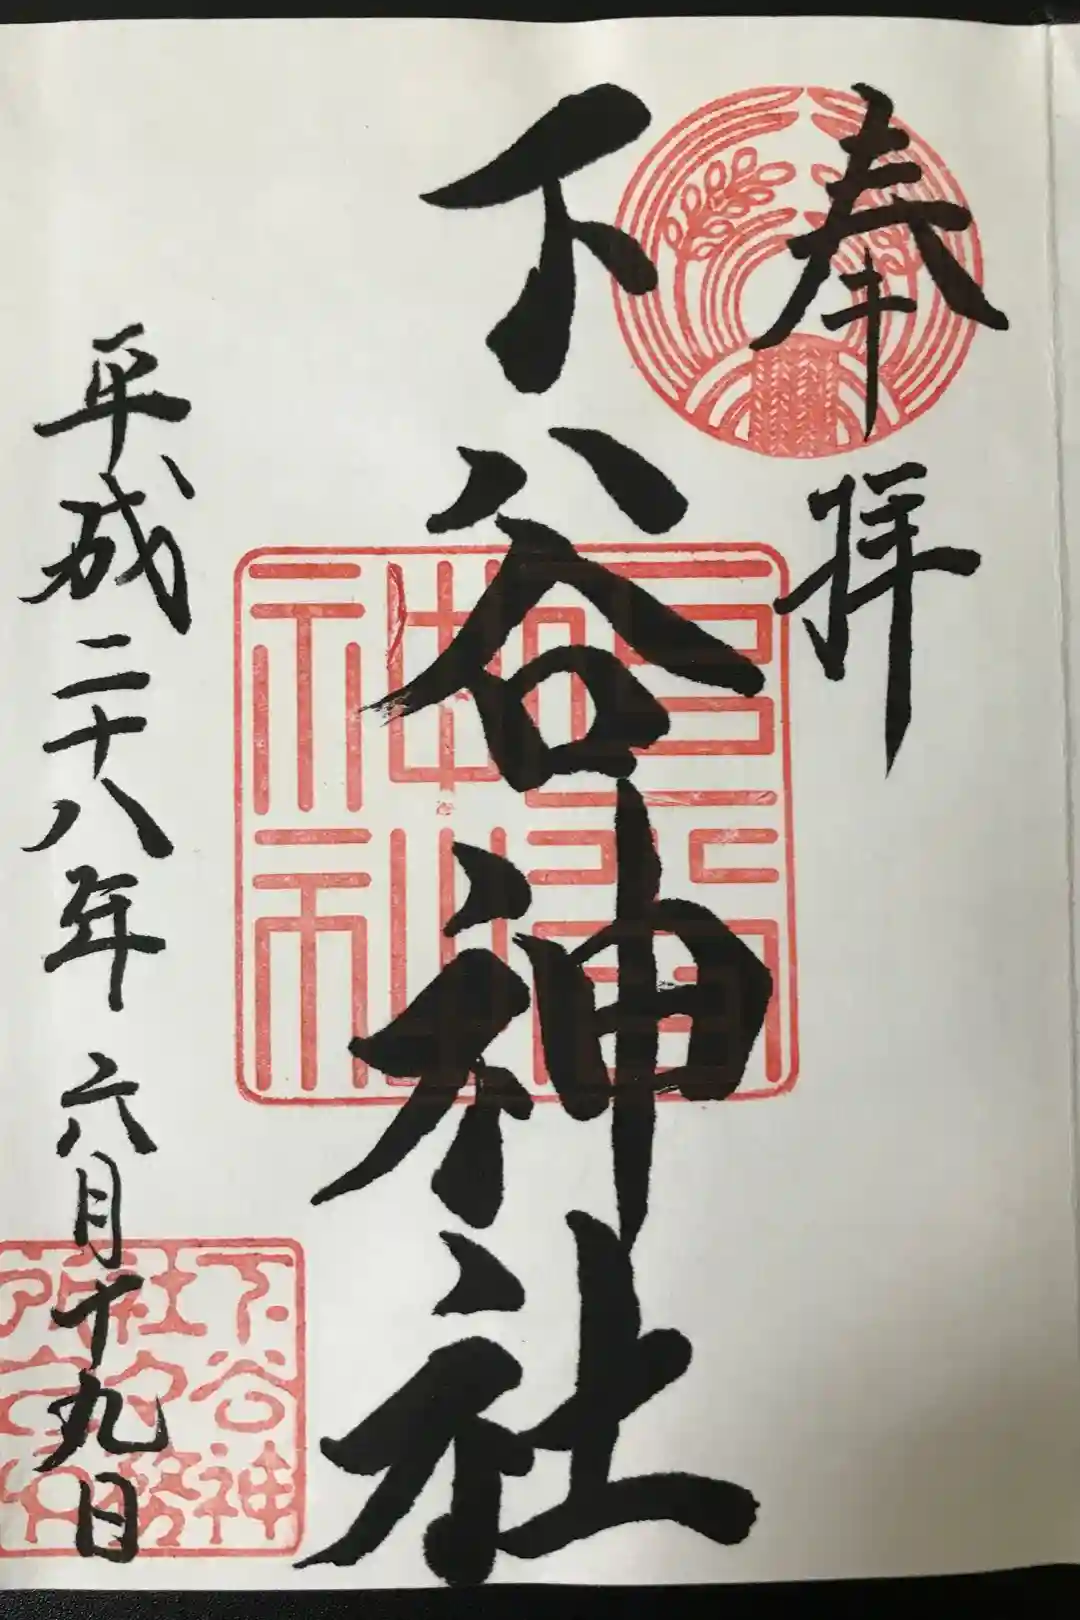 奉拝
下谷神社
平成二十八年 六月十九日
下谷神社社務所